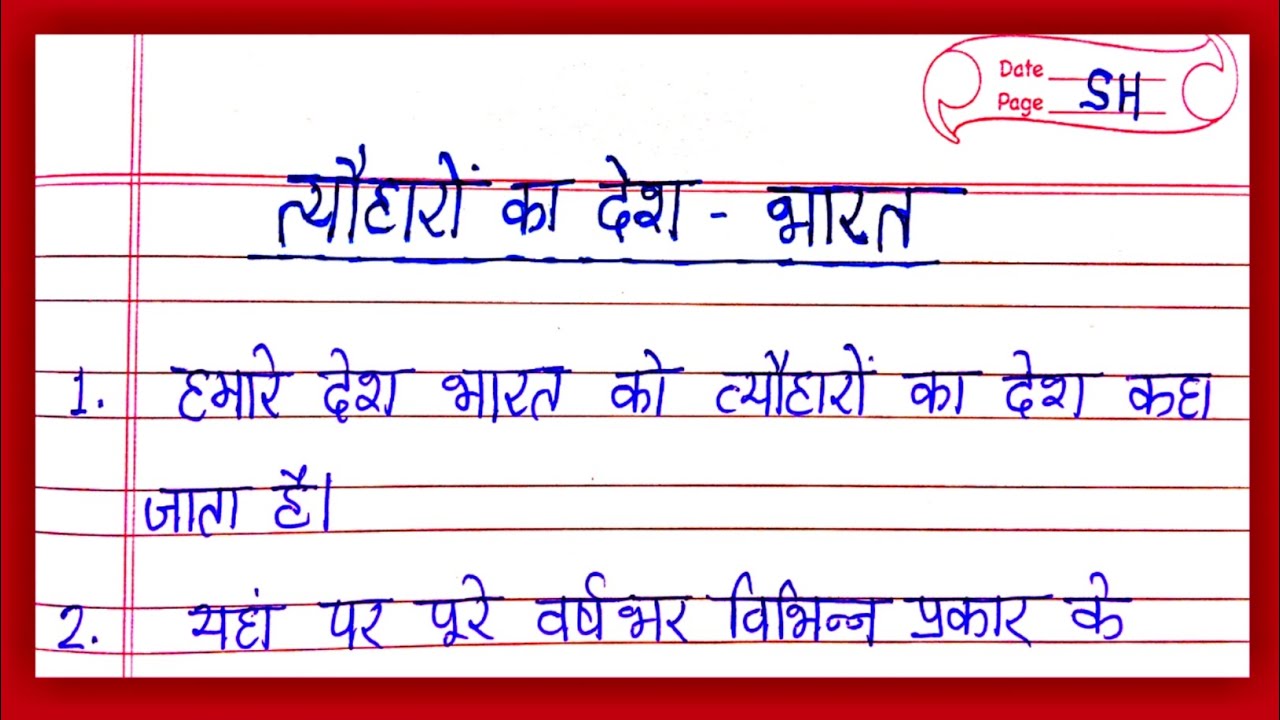 Date
Page SH
त्यौहारों का देश - भारत
1. हमारे देश भारत को त्यौहारों का देश कहा
जाता है।
2. यहां पर पूरे वर्षभर विभिन्न प्रकार के